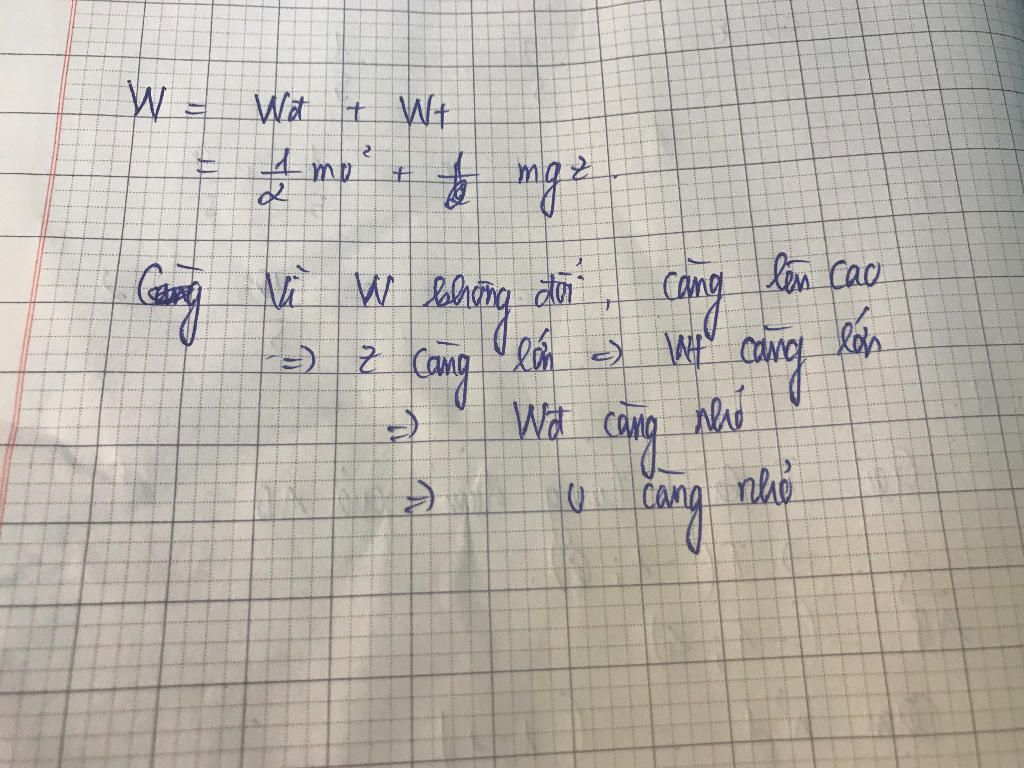 W = Wđ + Wt
= 1/2 mv² + 1/2 mgz.
Càng Vì W không đổi, càng lên cao
=> z càng lớn => Wt càng lớn
=> Wđ càng nhỏ
=> v càng nhỏ